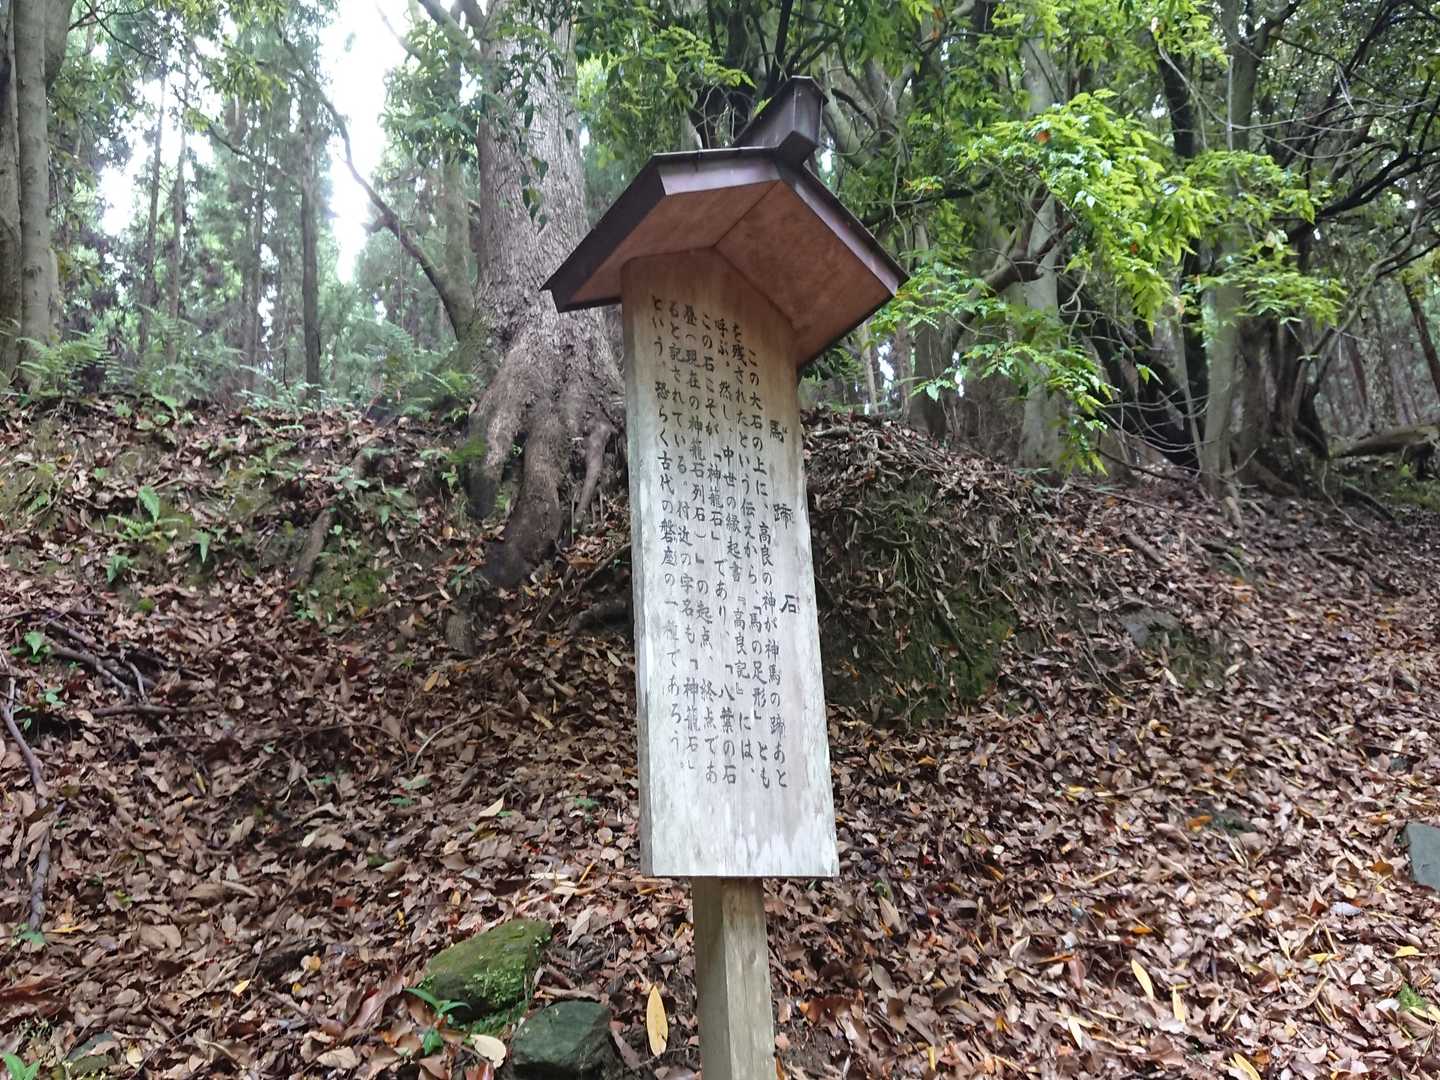 馬蹄石
この大石の上に、高良の神が神馬の蹄あと
を残されたという伝えから、「馬の足形」とも
呼ぶ。然し、中世の縁起書『高良記』には、
この石こそが「神龍石」であり、「八葉の石
畳（現在の神籠石列石）」の起点、終点であ
ると記されている。付近の字名も「神籠石」
という。恐らく古代の磐座の一種であろう。